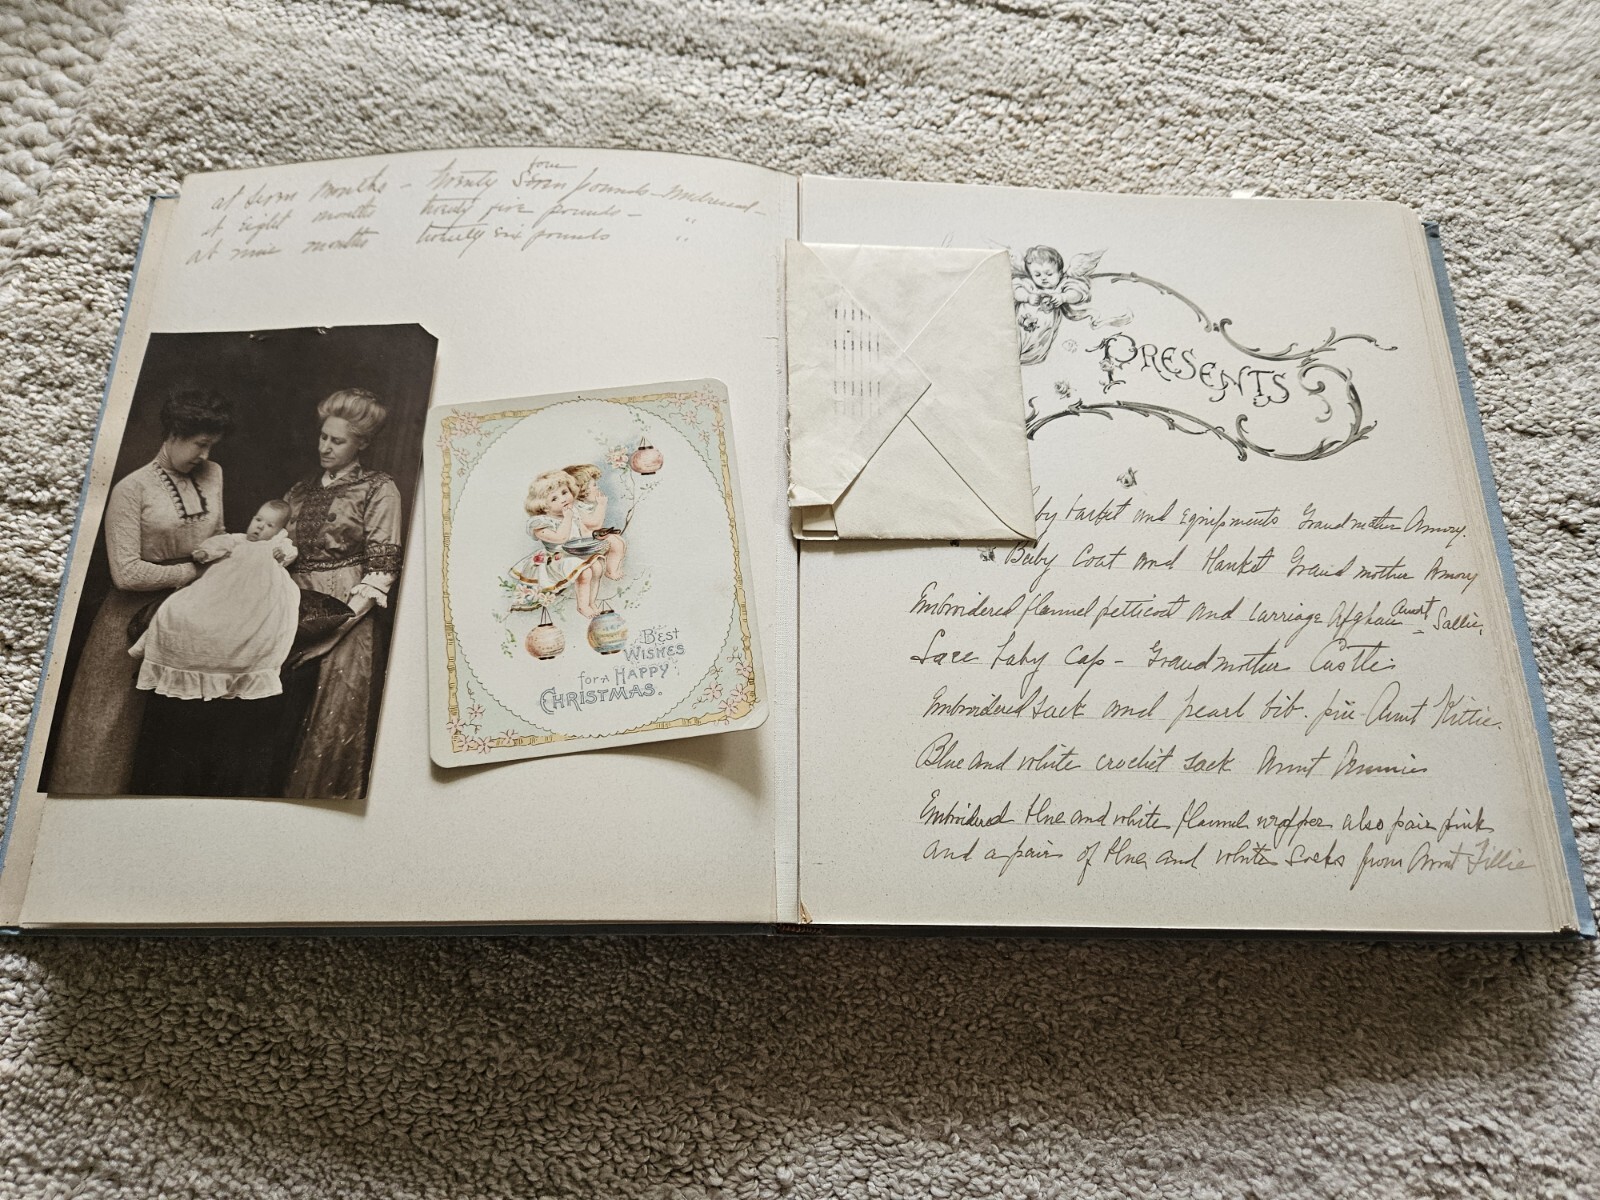 at seven months - twenty four pounds - undressed -
at Eight months twenty five pounds - "
at nine months twenty six pounds "
BEST
WISHES
for A HAPPY
CHRISTMAS.
PRESENTS
by basket and Equipments Grandmother Amory.
Baby Coat and Blanket Grandmother Amory
Embroidered flannel petticoat and carriage Afghan - Aunt Sallie.
Lace baby cap - Grandmother Castle
Embroidered sack and pearl bib. pin - Aunt Kittie.
Blue and white crochet sack Aunt Annie
Embroidered blue and white flannel wrapper also pair pink
and a pair of blue and white socks from Aunt Tillie